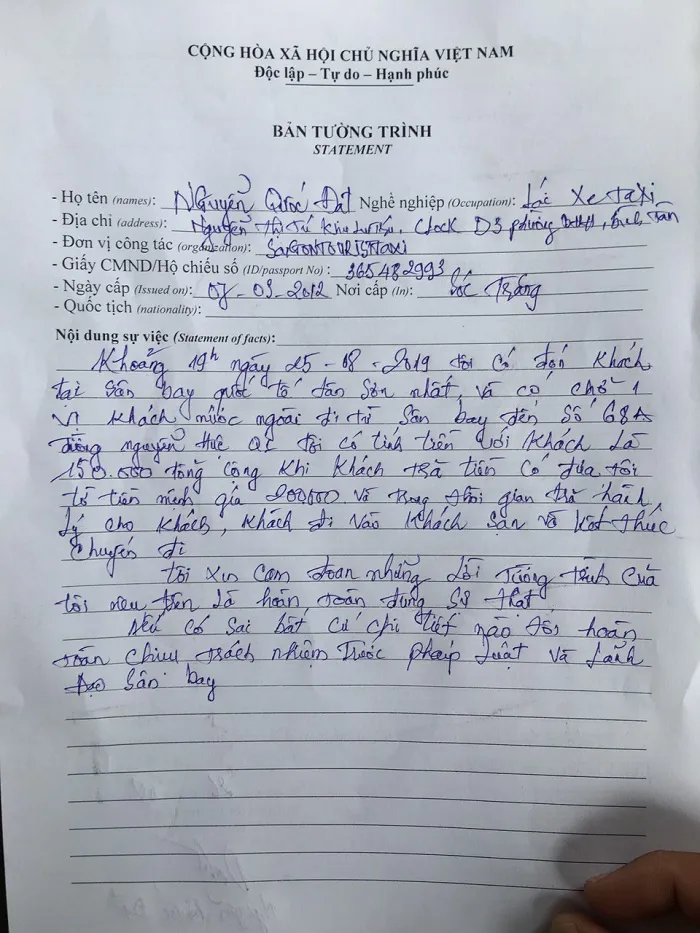 CỘNG HÒA XÃ HỘI CHỦ NGHĨA VIỆT NAM
Độc lập – Tự do – Hạnh phúc
BẢN TƯỜNG TRÌNH
STATEMENT
- Họ tên (names): Nguyễn Quốc Đạt Nghề nghiệp (Occupation): Lái xe taxi
- Địa chỉ (address): Nguyễn Thị Tú Khu , Clock D3 phường BHHB, Bình Tân
- Đơn vị công tác (organization): SAIGONTOURISTTAXI
- Giấy CMND/Hộ chiếu số (ID/passport No) : 365482993
- Ngày cấp (Issued on): 07 - 03 - 2012 Nơi cấp (In): Sóc Trăng
- Quốc tịch (nationality):
Nội dung sự việc (Statement of facts):
Khoảng 19h ngày 25 - 08 - 2019 tôi có đón Khách
tại sân bay quốc tế tân sơn nhất, và có chở 1
vị khách nước ngoài đi từ sân bay đến số 68A
đường nguyễn Huệ Q1 tôi có tính tiền với khách là
150.000 tổng cộng Khi Khách trả tiền có đưa tôi
tờ tiền mệnh giá 200000 và trong thời gian trả hành
lý cho khách, khách đi vào khách sạn và kết thúc
chuyến đi
tôi xin cam đoan những lời tường trình của
tôi nêu trên là hoàn toàn đúng sự thật
Nếu có sai bất cứ chi tiết nào tôi hoàn
toàn chịu trách nhiệm trước pháp luật và lãnh
đạo sân bay